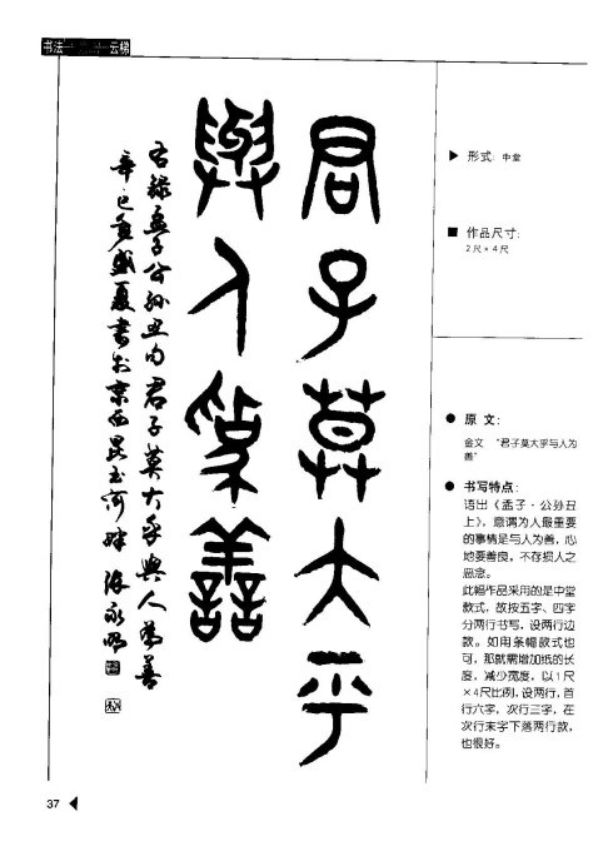 书法 云梯
君子莫大乎
與人為善
右録孟子公孙丑句君子莫大乎與人為善
辛巳年盛夏書於京西昆玉河畔 张永明
▶ 形式: 中堂
■ 作品尺寸:
2尺×4尺
● 原 文:
金文 “君子莫大乎与人为
善”
● 书写特点:
语出《孟子·公孙丑
上》，意谓为人最重要
的事情是与人为善，心
地要善良，不存损人之
恶念。
此幅作品采用的是中堂
款式，故按五字、四字
分两行书写，设两行边
款。如用条幅款式也
可，那就需增加纸的长
度，减少宽度，以1尺
×4尺比例，设两行，首
行六字，次行三字，在
次行末字下落两行款，
也很好。
37 ◀